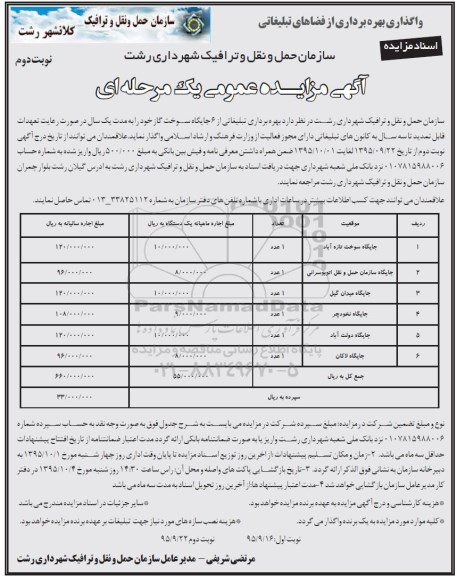 واگذاری بهره برداری از فضاهای تبلیغاتی
سازمان حمل و نقل و ترافیک
کلانشهر رشت
اسناد مزایده
سازمان حمل و نقل و ترافیک شهرداری رشت
نوبت دوم
آگهی مزایده عمومی یک مرحله ای
سازمان حمل و نقل و ترافیک شهرداری رشت در نظر دارد بهره برداری تبلیغاتی از ۶ جایگاه سوخت گاز خود را به مدت یک سال در صورت رعایت تعهدات
قابل تمدید تا سه سال به کانون های تبلیغاتی دارای مجوز فعالیت از وزارت فرهنگ و ارشاد اسلامی واگذار نماید. علاقمندان می توانند از تاریخ درج آگهی
نوبت دوم از تاریخ ۱۳۹۵/۰۹/۲۲ لغایت ۱۳۹۵/۱۰/۰۱ ضمن همراه داشتن معرفی نامه و فیش بین بانکی به مبلغ ۵۰۰/۰۰۰ ریال واریز شده به شماره حساب
۰۱۰۷۸۱۵۹۸۸۰۰۶ نزد بانک ملی شعبه شهرداری جهت دریافت اسناد به سازمان حمل و نقل و ترافیک شهرداری رشت به آدرس گیلان رشت بلوار چمران
سازمان حمل و نقل و ترافیک شهرداری رشت مراجعه نمایند.
علاقمندان می توانند جهت کسب اطلاعات بیشتر در ساعات اداری با شماره تلفن های دفتر سازمان به شماره ۳۳۸۲۵۱۱۲_۰۱۳ تماس حاصل نمایند.
ردیف موقعیت تعداد مبلغ اجاره ماهیانه یک دستگاه به ریال مبلغ اجاره سالیانه به ریال
۱ جایگاه سوخت تازه آباد ۱ عدد ۱۰/۰۰۰/۰۰۰ ۱۲۰/۰۰۰/۰۰۰
۲ جایگاه سازمان حمل و نقل اتوبوسرانی ۱ عدد ۸/۰۰۰/۰۰۰ ۹۶/۰۰۰/۰۰۰
۳ جایگاه میدان گیل ۱ عدد ۱۰/۰۰۰/۰۰۰ ۱۲۰/۰۰۰/۰۰۰
۴ جایگاه نخودچر ۱ عدد ۹/۰۰۰/۰۰۰ ۱۰۸/۰۰۰/۰۰۰
۵ جایگاه دولت آباد ۱ عدد ۱۰/۰۰۰/۰۰۰ ۱۲۰/۰۰۰/۰۰۰
۶ جایگاه لاکان ۱ عدد ۸/۰۰۰/۰۰۰ ۹۶/۰۰۰/۰۰۰
جمع کل به ریال ۵۵/۰۰۰/۰۰۰ ۶۶۰/۰۰۰/۰۰۰
سپرده به ریال ۳۳/۰۰۰/۰۰۰
ParsNamadData
پایگاه اطلاع رسانی مناقصه و مزایده
۰۲۱-۸۸۳۴۹۶۷۰-۵
نوع و مبلغ تضمین شرکت در مزایده: مبلغ سپرده شرکت در مزایده می بایست به شرح جدول فوق به صورت وجه نقد به حساب سپرده شماره
۰۱۰۷۸۱۵۹۸۸۰۰۶ نزد بانک ملی شعبه شهرداری رشت واریز یا به صورت ضمانتنامه بانکی ارائه گردد مدت اعتبار ضمانتنامه از تاریخ افتتاح پیشنهادات
حداقل سه ماه می باشد. ۲-زمان و مکان تسلیم پیشنهادات: از آخرین روز توزیع اسناد مزایده تا پایان وقت اداری روز چهارشنبه مورخ ۱۳۹۵/۱۰/۱ به
دبیرخانه سازمان به نشانی فوق الذکر ارائه گردد. ۳-تاریخ بازگشایی پاکت های واصله و محل آن: راس ساعت ۱۴:۳۰ روز شنبه مورخ ۱۳۹۵/۱۰/۴ در دفتر
کار مدیرعامل سازمان بازگشایی خواهد شد ۴-مدت اعتبار پیشنهادها از آخرین روز تحویل اسناد به مدت سه ماه می باشد
*هزینه کارشناسی و درج آگهی مزایده به عهده برنده مزایده خواهد بود.
*سایر جزئیات در اسناد مزایده مندرج می باشد
*کلیه موارد مورد مزایده به یک برنده واگذار می گردد.
*هزینه نصب سازه های مورد نیاز جهت تبلیغات بر عهده برنده مزایده خواهد بود.
نوبت اول: ۹۵/۹/۱۶
نوبت دوم ۹۵/۹/۲۲
مرتضی شریفی - مدیرعامل سازمان حمل و نقل و ترافیک شهرداری رشت